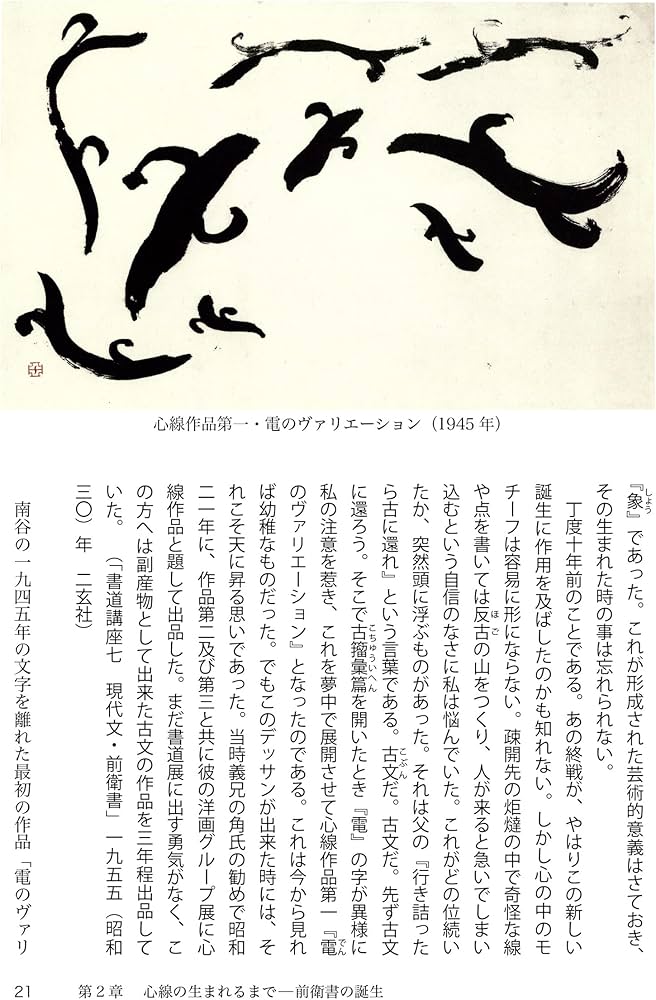 心線作品第一・電のヴァリエーション（1945 年）
『象』であった。これが形成された芸術的意義はさておき、
その生まれた時の事は忘れられない。
丁度十年前のことである。あの終戦が、やはりこの新しい
誕生に作用を及ばしたのかも知れない。しかし心の中のモ
チーフは容易に形にならない。疎開先の炬燵の中で奇怪な線
や点を書いては反古の山をつくり、人が来ると急いでしまい
込むという自信のなさに私は悩んでいた。これがどの位続い
たか、突然頭に浮ぶものがあった。それは父の『行き詰った
ら古に還れ』という言葉である。古文だ。古文だ。先ず古文
に還ろう。そこで古籀彙篇を開いたとき『電』の字が異様に
私の注意を惹き、これを夢中で展開させて心線作品第一『電
のヴァリエーション』となったのである。これは今から見れ
ば幼稚なものだった。でもこのデッサンが出来た時には、そ
れこそ天に昇る思いであった。当時義兄の角氏の勧めで昭和
二一年に、作品第二及び第三と共に彼の洋画グループ展に心
線作品と題して出品した。まだ書道展に出す勇気がなく、こ
の方へは副産物として出来た古文の作品を三年程出品して
いた。　（「書道講座七　現代文・前衛書」一九五五（昭和
三〇）年　二玄社）
南谷の一九四五年の文字を離れた最初の作品「電のヴァリ
21　第２章　心線の生まれるまで―前衛書の誕生